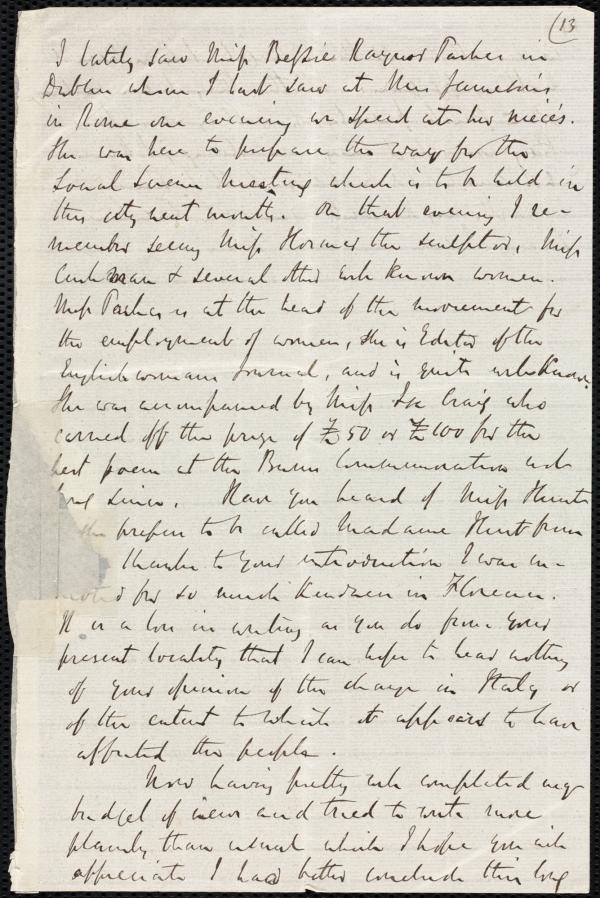 (13
I lately saw Miss Bessie Raynor Parkes in
Dublin whom I last saw at Mrs Jameson's
in Rome one evening we spent at her niece's.
She was here to prepare the way for the
Social Science Meeting which is to be held in
this city next month. On that evening I re-
member seeing Miss Hosmer the sculptor, Miss
Cushman & several other well known women.
Miss Parkes is at the head of the movement for
the employment of women, she is Editor of the
English womans Journal, and is quite well known.
She was accompanied by Miss Isa Craig who
carried off the prize of £50 or £100 for the
best poem at the Burns Commemoration not
long since. Have you heard of Miss Hunt
who prefers to be called Madame Hunt from
thanks to your introduction I was in-
debted for so much kindness in Florence.
It is a loss in writing as you do from your
present locality that I can hope to hear nothing
of your opinion of the change in Italy or
of the extent to which it appears to have
affected the people.
Now having pretty well completed my
budget of news and tried to write more
plainly than usual which I hope you will
appreciate I had better conclude this long